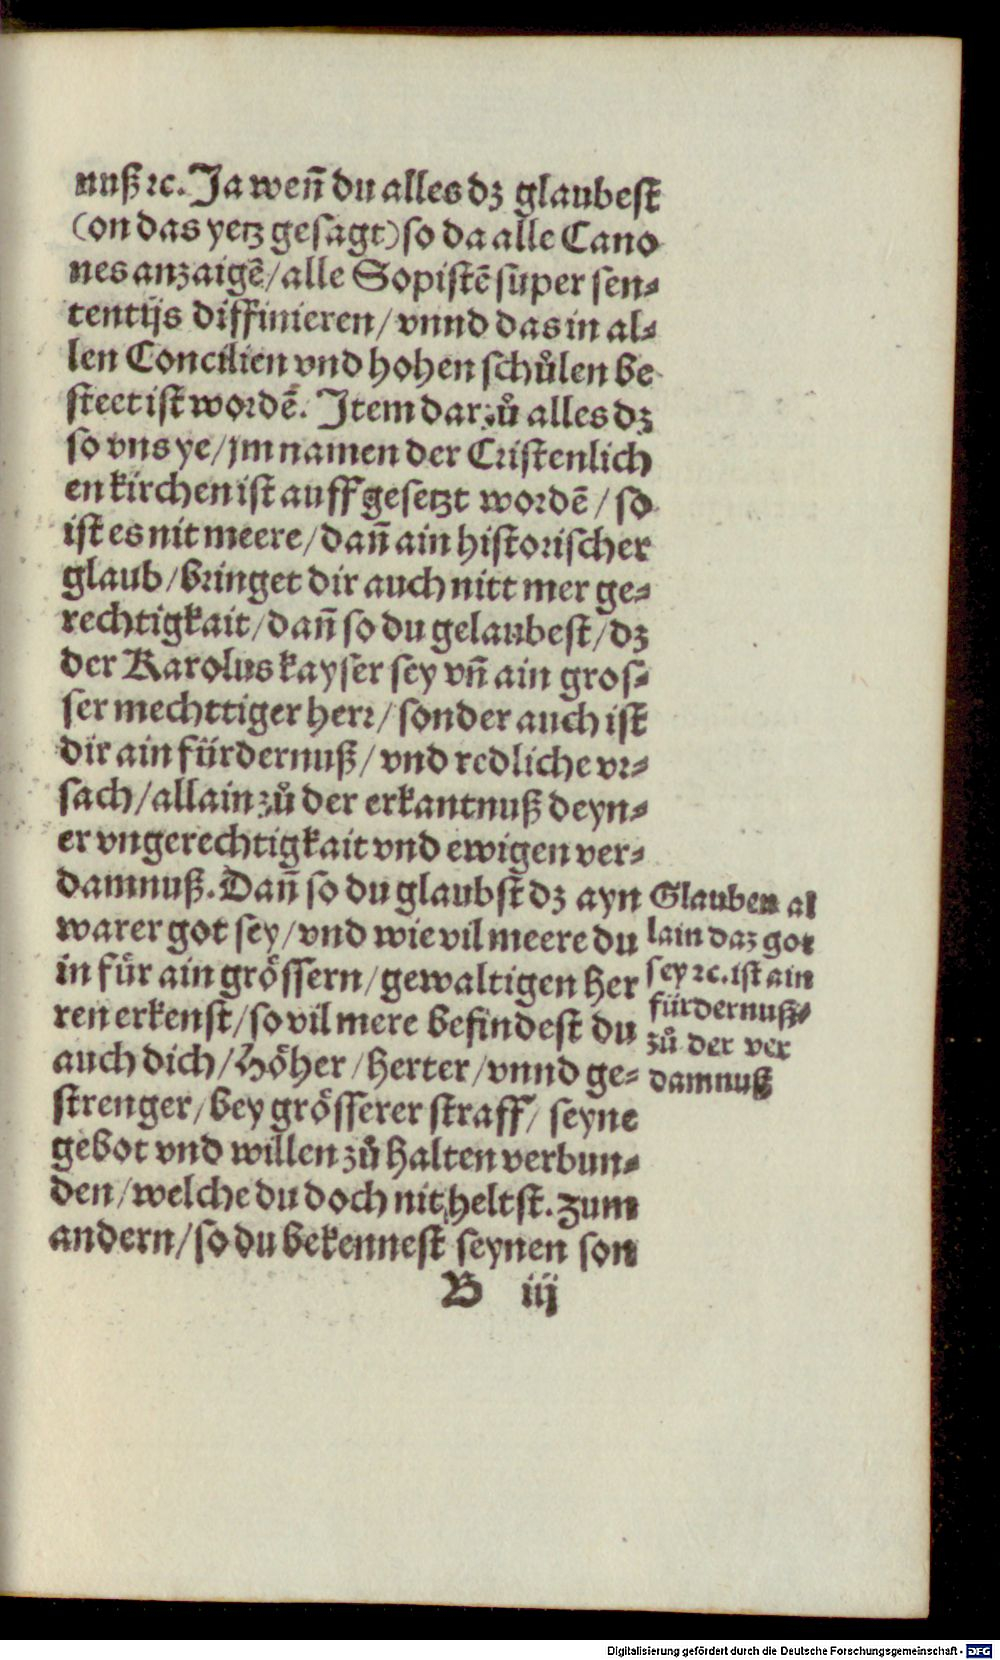 nuß ꝛc. Ja weñ du alles dz glaubest
(on das yetz gesagt) so da alle Cano
nes anzaigẽ/ alle Sopistẽ super sen⸗
tentijs diffinieren/ vnnd das in al⸗
len Concilien vnd hohen schůlen be
steet ist wordẽ. Item dar zů alles dz
so vns ye/ jm namen der Cristenlich
en kirchen ist auff gesetzt wordẽ/ so
ist es nit meere/ dañ ain historischer
glaub/ bringet dir auch nitt mer ge⸗
rechtigkait/ dañ so du gelaubest/ dz
der Karolus kayser sey vñ ain gros⸗
ser mechttiger herr/ sonder auch ist
dir ain fürdernuß/ vnd redliche vr⸗
sach/ allain zů der erkantnuß deyn⸗
er vngerechtigkait vnd ewigen ver⸗
damnuß. Dañ so du glaubst dz ayn
warer got sey/ vnd wie vil meere du
in für ain grössern/ gewaltigen her
ren erkenst/ so vil mere befindest du
auch dich/ Höher/ herter/ vnnd ge⸗
strenger/ bey grösserer straff/ seyne
gebot vnd willen zů halten verbun⸗
den/ welche du doch nit heltst. Zum
andern/ so du bekennest seynen son
B iij
Glauben al
lain daz got
sey ꝛc. ist ain
fürdernuß⸗
zů der ver
damnuß
Digitalisierung gefördert durch die Deutsche Forschungsgemeinschaft - DFG